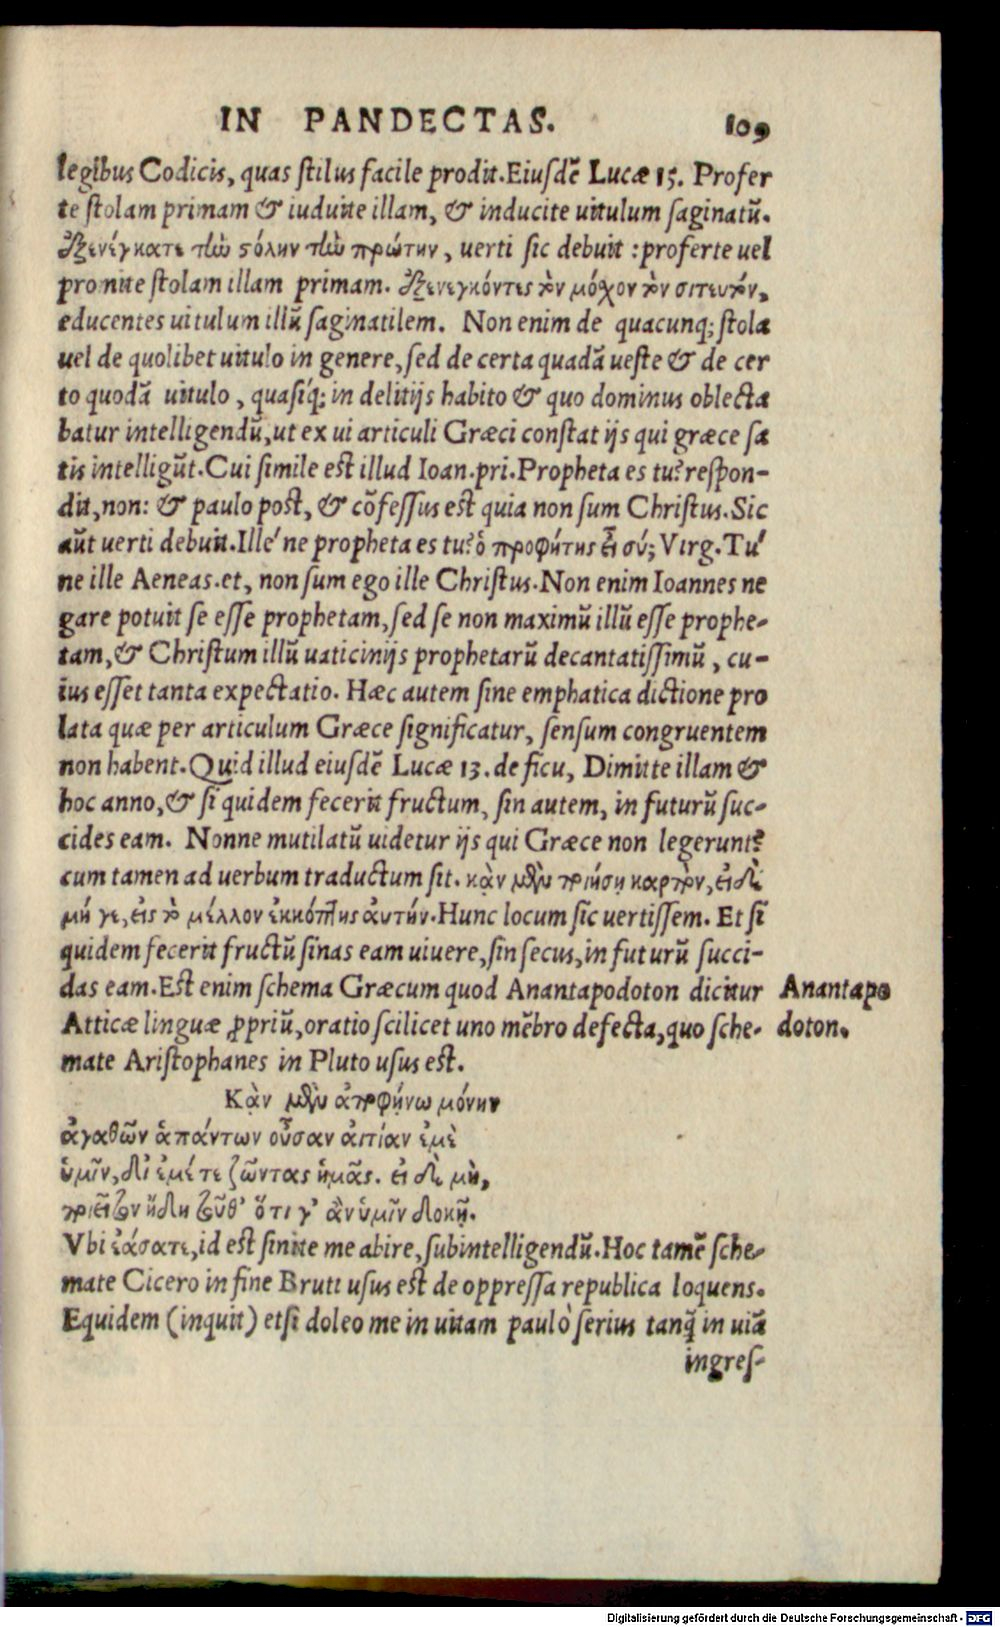 IN PANDECTAS. 109
legibus Codicis, quas stilus facile prodit. Eiusdē Lucæ 15. Profer
te stolam primam & iuduite illam, & inducite uitulum saginatū.
ἐξενέγκατε τὼ στόλην τὼ πρώτην, uerti sic debuit : proferte uel
promite stolam illam primam. ἐξενεγκόντες τὸν μόχον τὸν σιτευτόν,
educentes uitulum illū saginatilem. Non enim de quacunq; stola
uel de quolibet uitulo in genere, sed de certa quadā ueste & de cer
to quodā uitulo, quasíq; in delitijs habito & quo dominus oblecta
batur intelligendū, ut ex ui articuli Græci constat ijs qui græce sa
tis intelligūt. Cui simile est illud Ioan. pri. Propheta es tu? respon-
dit, non: & paulo post, & cōfessus est quia non sum Christus. Sic
aūt uerti debuit. Ille´ne propheta es tu? ὁ προφήτης εἶ σύ; Virg. Tu´
ne ille Aeneas. et, non sum ego ille Christus. Non enim Ioannes ne
gare potuit se esse prophetam, sed se non maximū illū esse prophe-
tam, & Christum illū uaticinijs prophetarū decantatissimū, cu-
ius esset tanta expectatio. Hæc autem sine emphatica dictione pro
lata quæ per articulum Græce significatur, sensum congruentem
non habent. Quid illud eiusdē Lucæ 13. de ficu, Dimitte illam &
hoc anno, & si quidem fecerit fructum, sin autem, in futurū suc-
cides eam. Nonne mutilatū uidetur ijs qui Græce non legerunt?
cum tamen ad uerbum traductum sit. κᾂν μὲν ποιήσῃ καρπὸν, εἰ δὲ
μή γε, εἰς τὸ μέλλον ἐκκόπῃς ἀυτήν. Hunc locum sic uertissem. Et si
quidem fecerit fructū sinas eam uiuere, sin secus, in futurū succi-
das eam. Est enim schema Græcum quod Anantapodoton dicitur
Anantapo
Atticæ linguæ ꝓpriū, oratio scilicet uno mēbro defecta, quo sche-
doton.
mate Aristophanes in Pluto usus est.
Κᾂν μὲν ἀποφήνω μόνην
ἀγαθῶν ἁπάντων οὖσαν ἀιτίαν ἐμὲ
ὑμῖν, δἰ ἐμέ τε ζῶντας ἡμᾶς. εἰ δὲ μὴ,
ποιεῖτον ἤδη τοῦθ' ὅτι γ' ἂν ὑμῖν δοκῇ.
Vbi ἐάσατε, id est sinite me abire, subintelligendū. Hoc tamē sche-
mate Cicero in fine Bruti usus est de oppressa republica loquens.
Equidem (inquit) etsi doleo me in uitam paulò serius tanq̃ in uiā
ingres-
Digitalisierung gefördert durch die Deutsche Forschungsgemeinschaft - DFG